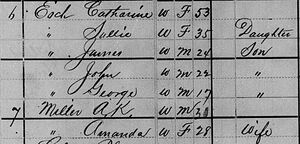 6 Esch Catharine W F 53
" Sallie W F 35 Daughter
" James W M 24 Son
" John W M 22 "
" George W M 17 "
7 Miller A.K. W M
" Amanda W F 28 Wife